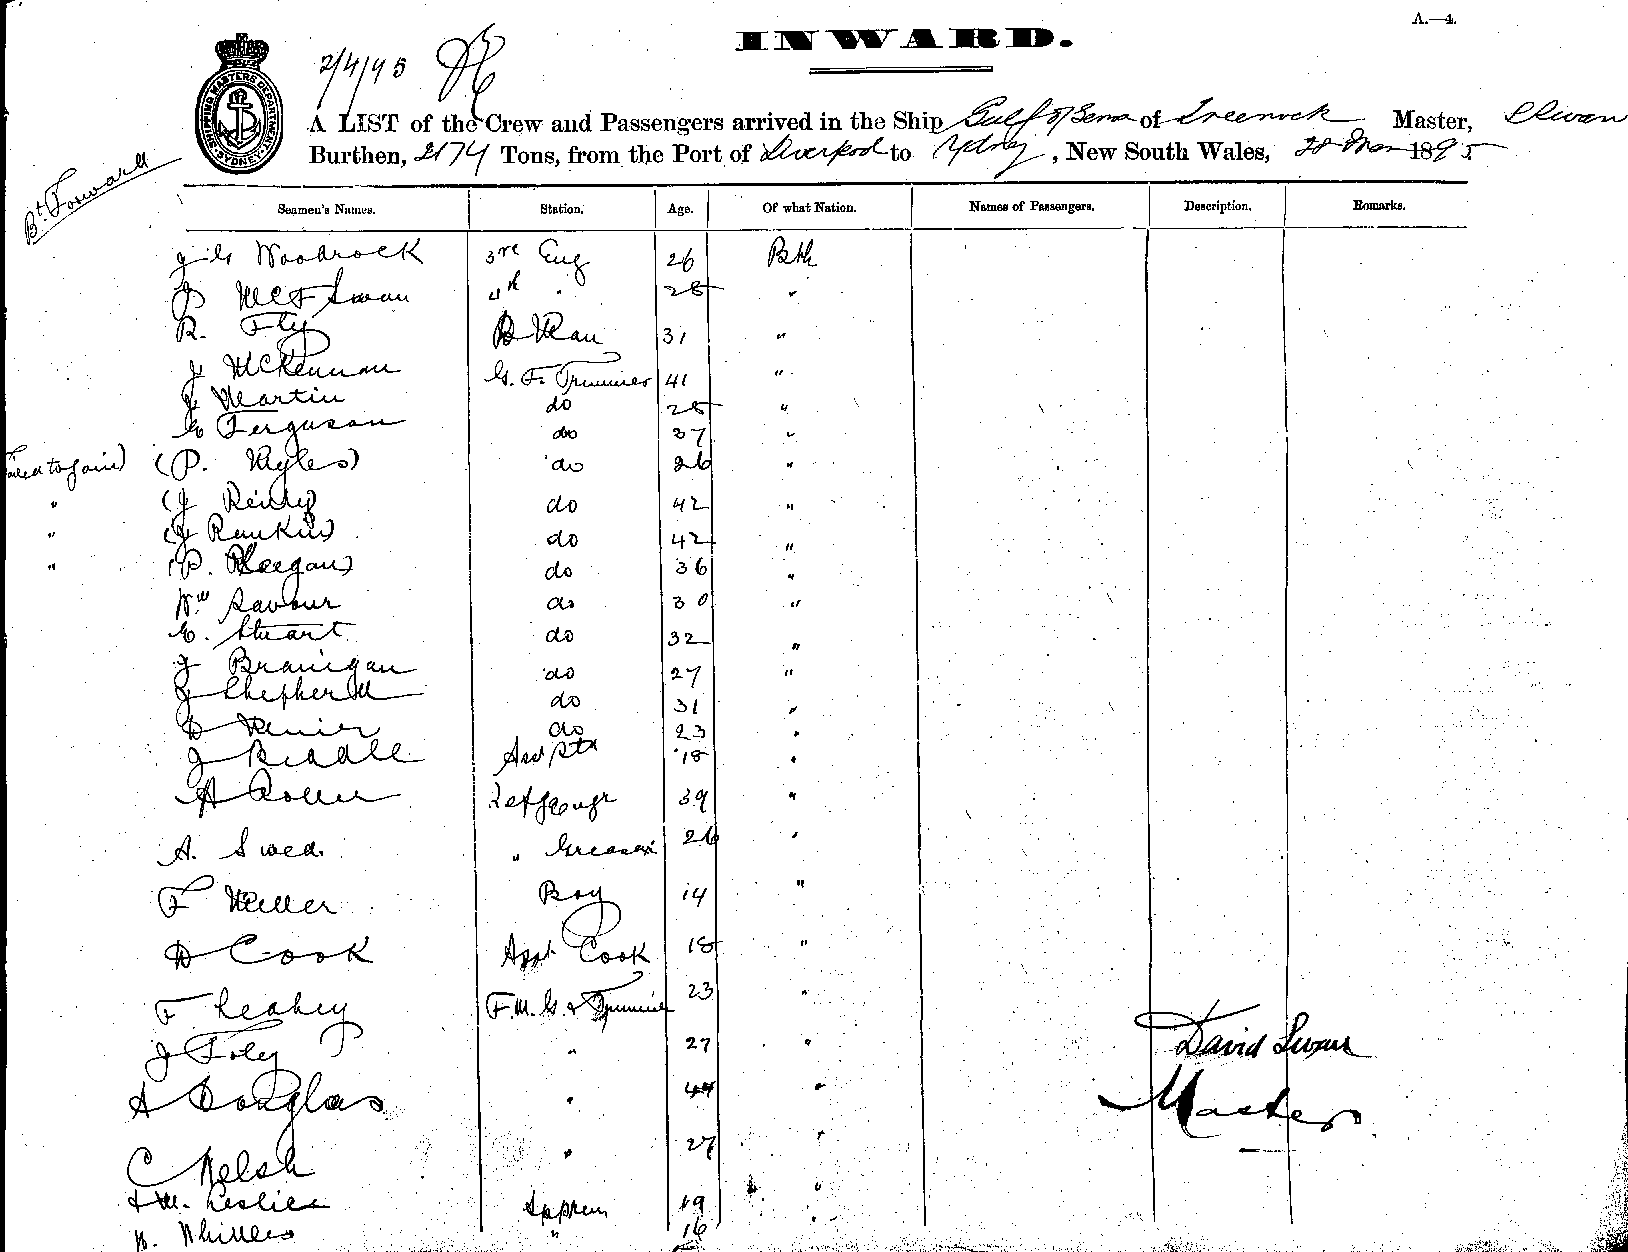 A.—4.
INWARD.
2/4/95
SHIPPING MASTERS DEPARTMENT SYDNEY
A LIST of the Crew and Passengers arrived in the Ship Gulf of Siam of Greenock Master, D Swan
Burthen, 2174 Tons, from the Port of Liverpool to Sydney, New South Wales, 28 Mar 1895
Bt Forward
Seamen's Names. Station. Age. Of what Nation. Names of Passengers. Description. Remarks.
Woodrock 3rd Eng 26 Bth
J McF Swan 4th " 25 "
R. Fly 31 "
J McKennan G. F. Trimmer 41 "
J Martin do 25 "
G Ferguson do 37 "
Failed to join (P. Kyles) do 26 "
" (J Reilly) do 42 "
" (J Rankin) do 42 "
" (P. Keegan) do 36 "
Wm Savour do 30 "
G. Stuart do 32 "
J Branigan do 27 "
J Shepherd do 31 "
D do 23 "
J Riddle 18 "
A 39 "
A. Swed. " Greaser 26 "
F Miller Boy 14 "
D Cook Asst Cook 18 "
F Leahey F.M. G. & Trimmer 23 "
J Foley " 27 "
A Douglas " "
C Welsh " 27 "
M. Leslie Appren 19 "
W. " 16 "
David Swan
Master